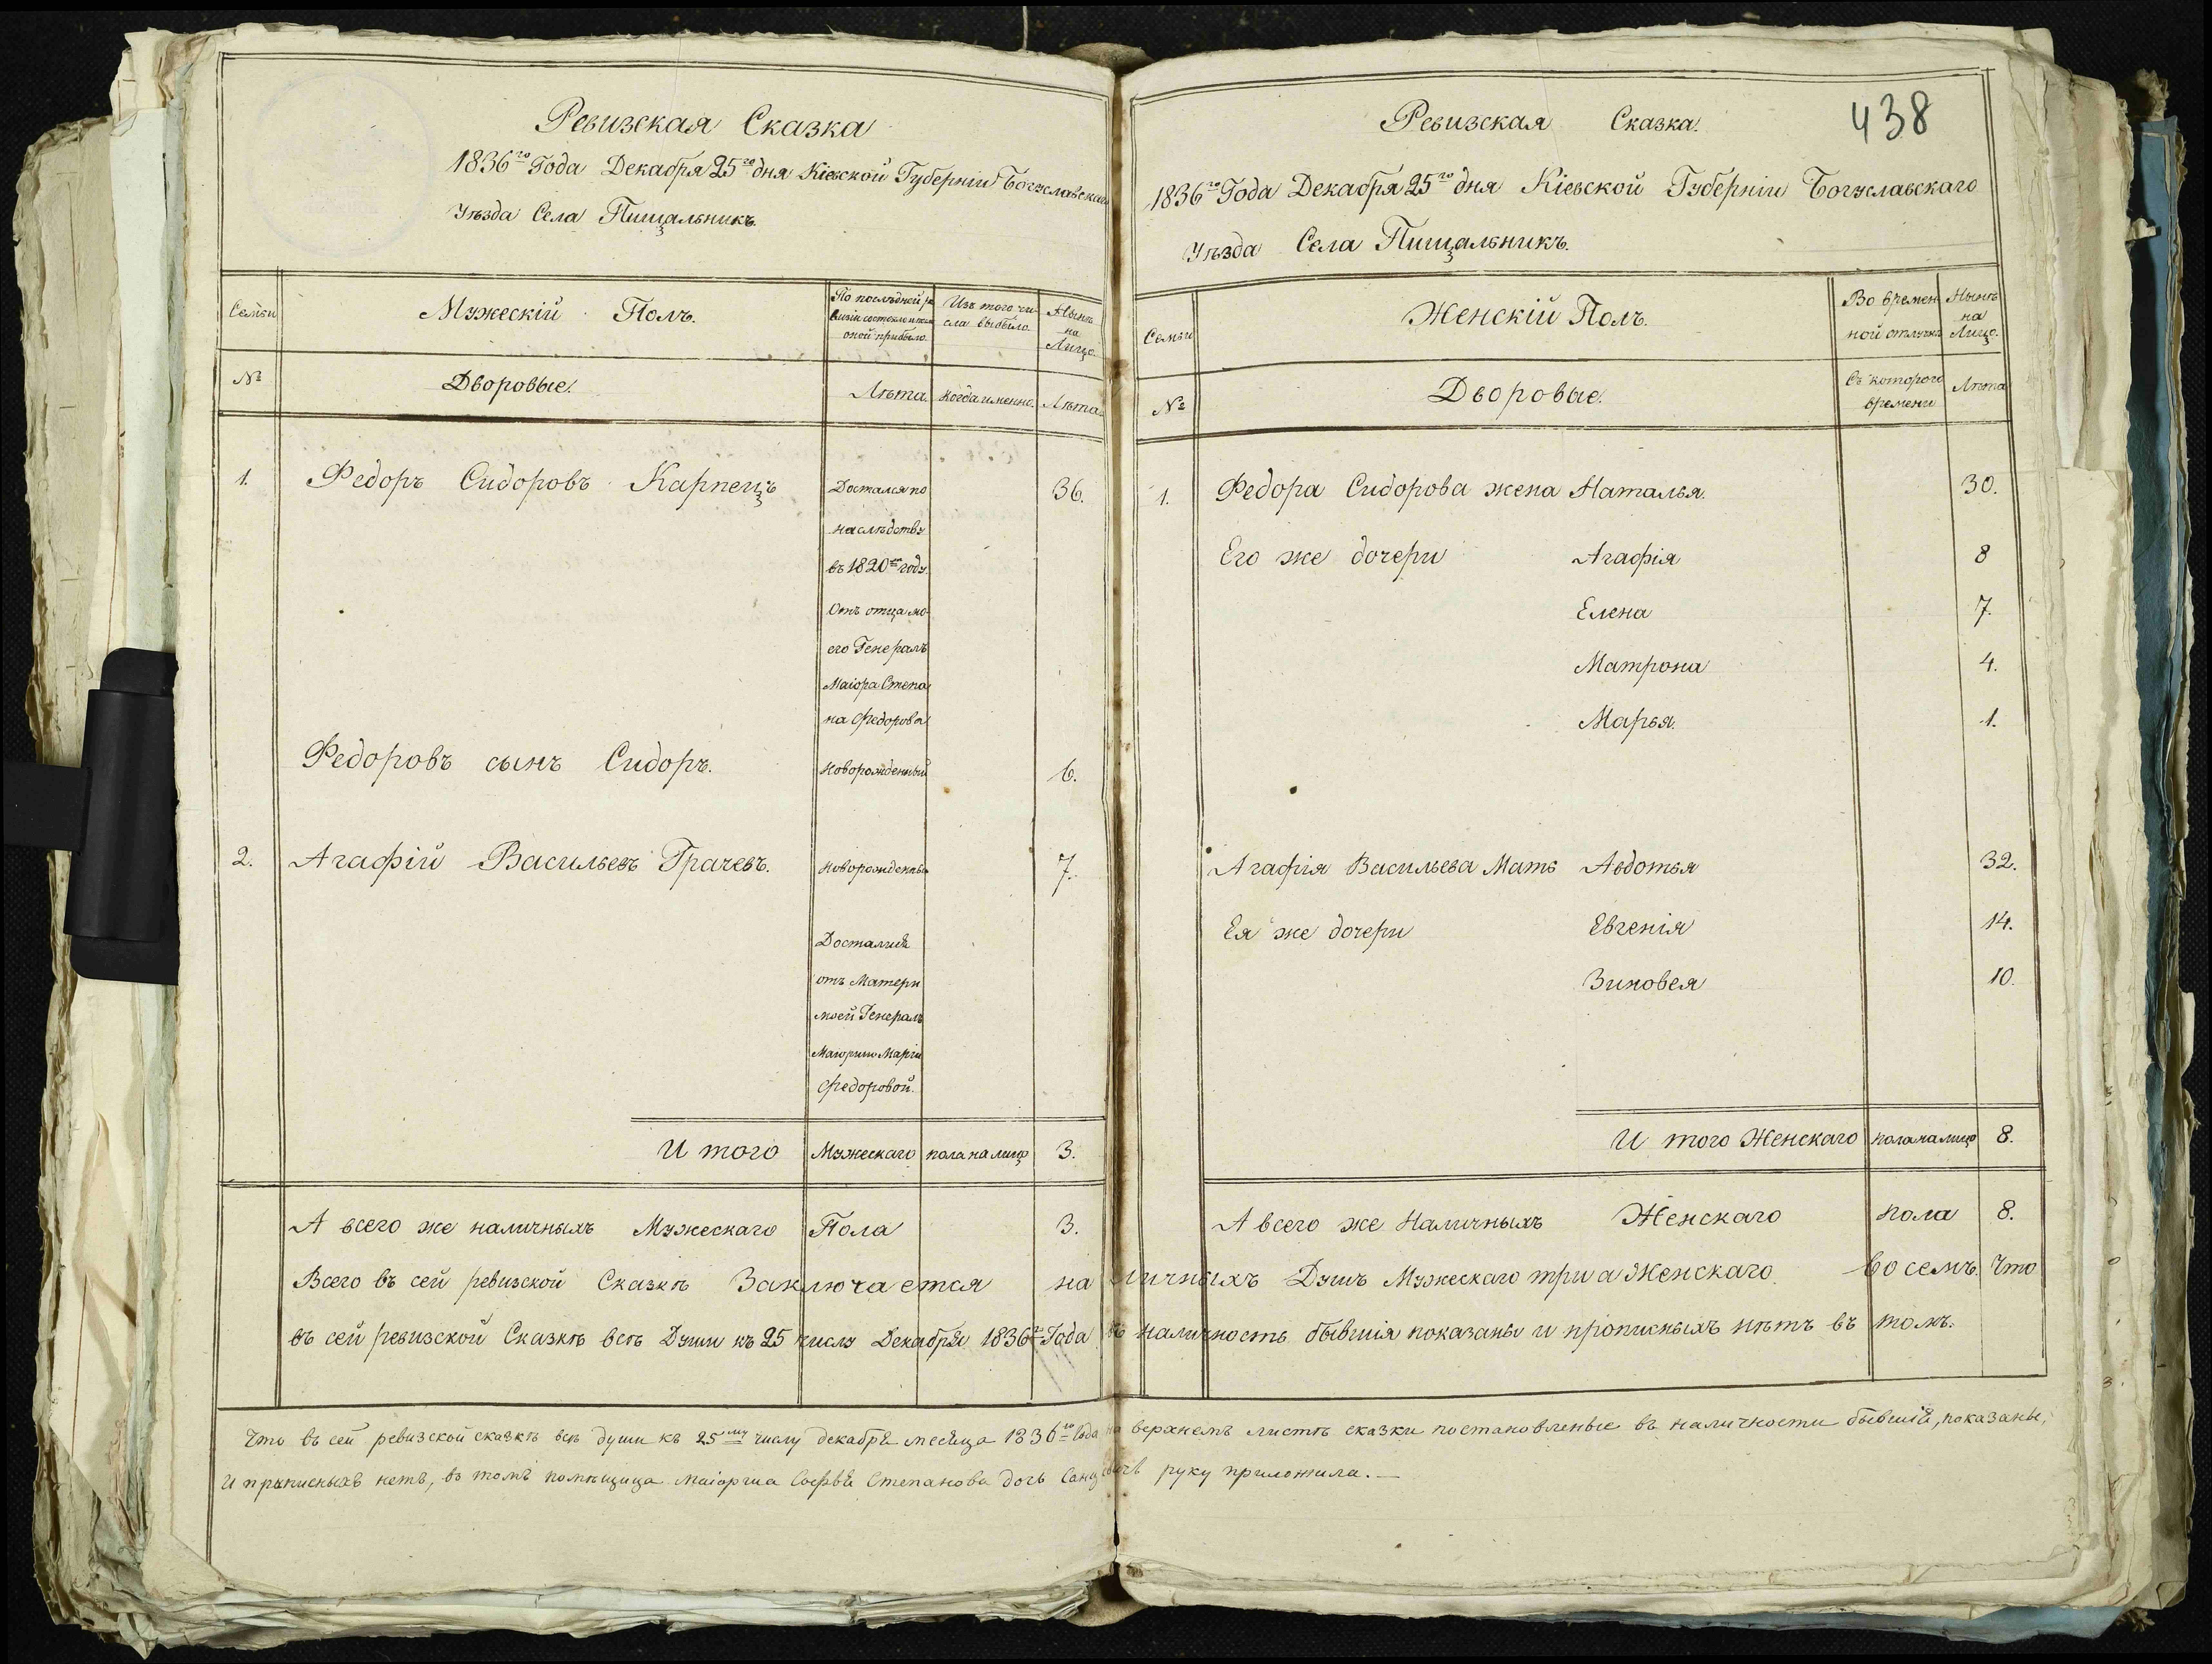 Ревизская Сказка
1836го Года Декабря 25го дня Кіевской Губерніи Богуславскаго
Уѣзда Села Пищальникъ.
Семьи
Мужескій Полъ.
По послѣдней ре
визіи состояло и после
оной прибыло.
Изъ того чи
сла выбыло
Нынѣ
на
Лицо.
№
Дворовые.
Лѣта.
когда именно.
Лѣта.
1. Федоръ Сидоровъ Карпецъ Достался по 36.
наслѣдству
въ 1820мъ году
Отъ отца мо
его Генералъ
Маіора Степа
на Федорова
Федоровъ сынъ Сидоръ. новорожденный 6.
2. Агафій Васильевъ Грачевъ. новорожденный 7.
Достался
отъ Матери
моей Генералъ
Маіорши Маріи
Федоровой.
И того Мужескаго пола на лицо 3.
А всего же наличныхъ Мужескаго Пола 3.
Ревизская Сказка.
438
1836го Года Декабря 25го дня Кіевской Губерніи Богуславскаго
Уѣзда Села Пищальникъ.
Семьи
Женскій Полъ.
Во времен
ной отлучкѣ
Нынѣ
на
Лицо.
№
Дворовые.
Съ котораго
времени
Лѣта
1. Федора Сидорова жена Наталья. 30.
Его же дочери Агафія 8
Елена 7.
Матрона 4.
Марья. 1.
Агафія Васильева Мать Авдотья 32.
Ея же дочери Евгенія 14.
Зиновея 10.
И того Женскаго пола на лицо 8.
А всего же Наличныхъ Женскаго пола 8.
Всего въ сей ревизской Сказкѣ Заключается на личныхъ Душъ Мужескаго три а Женскаго восемъ. Что
въ сей ревизской Сказкѣ всѣ Души къ 25 числу Декабря 1836го Года въ наличность бывшія показаны и прописныхъ нѣтъ въ томъ.
Что въ сей ревизской сказкѣ всѣ души къ 25му числу декабря месяца 1836го Года на верхнемъ листѣ сказки постановленые въ наличности бывшія, показаны,
и прописныхъ нетъ, въ томъ помѣщица маіорша Софья Степанова дочь руку приложила.—